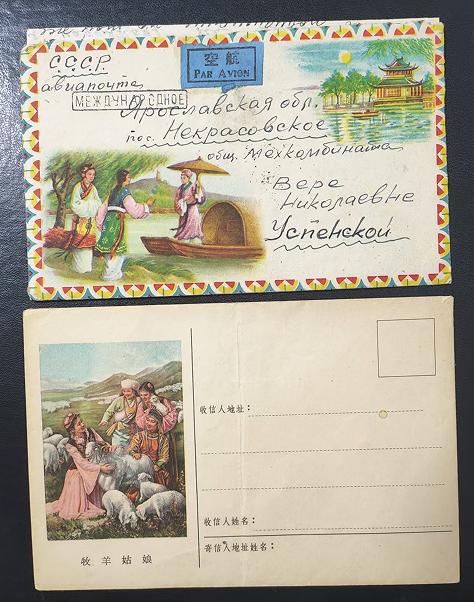 СССР
авиапочта
空航
PAR AVION
МЕЖДУНАРОДНОЕ
Ярославская обл.
пос. Некрасовское
общ. Мехкомбината
Вере
Николаевне
Успенской
收信人地址：
收信人姓名：
寄信人地址姓名：
牧羊姑娘